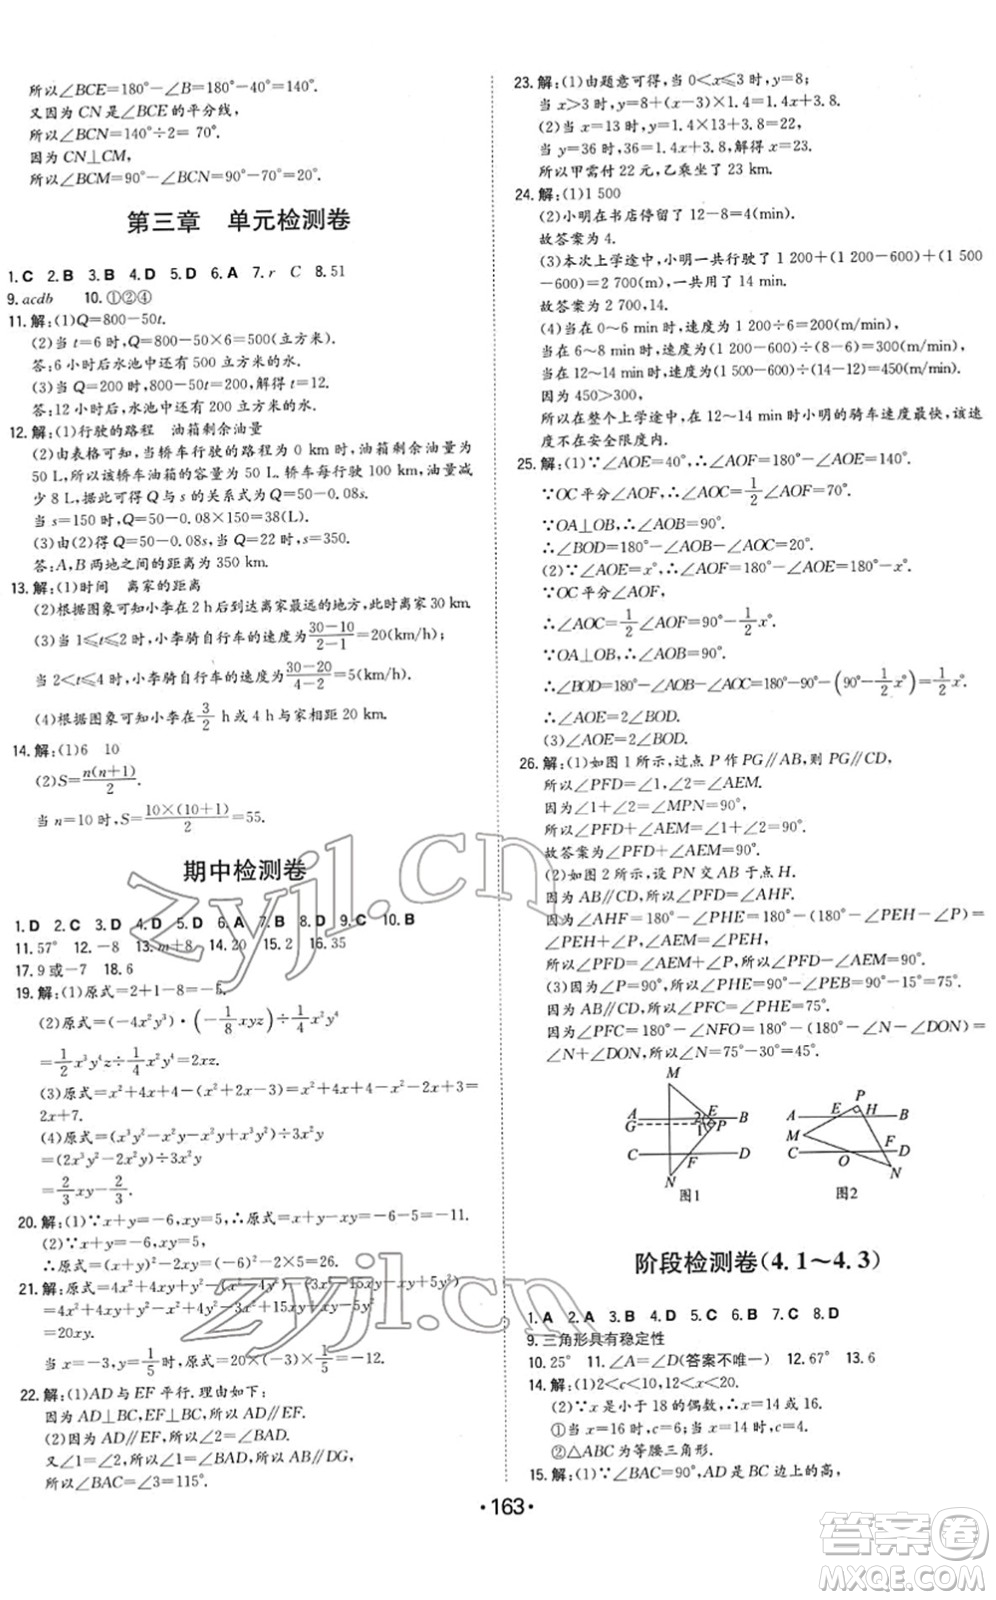 所以∠BCE=180°-∠B=180°-40°=140°.
又因为 CN 是∠BCE 的平分线,
所以∠BCN=140°÷2= 70°.
因为 CN⊥CM,
所以∠BCM=90°-∠BCN=90°-70°=20°.
第三章 单元检测卷
1.C 2.B 3.B 4.D 5.D 6.A 7.r C 8.51
9.acdb 10.①②④
11.解:(1)Q=800-50t.
(2)当 t=6 时,Q=800-50×6=500(立方米).
答:6 小时后水池中还有 500 立方米的水.
(3)当 Q=200 时,800-50t=200,解得 t=12.
答:12 小时后,水池中还有 200 立方米的水.
12.解:(1)行驶的路程 油箱剩余油量
(2)由表格可知,当轿车行驶的路程为 0 km 时,油箱剩余油量为
50 L,所以该轿车油箱的容量为 50 L.轿车每行驶 100 km,油量减
少 8 L,据此可得 Q 与 s 的关系式为 Q=50-0.08s.
当 s=150 时,Q=50-0.08×150=38(L).
(3)由(2)得 Q=50-0.08s,当 Q=22 时,s=350.
答:A,B 两地之间的距离为 350 km.
13.解:(1)时间 离家的距离
(2)根据图象可知小李在 2 h 后到达离家最远的地方,此时离家 30 km.
(3)当 1⩽t⩽2 时,小李骑自行车的速度为\frac{30-10}{2-1}=20(km/h);
当 2<t⩽4 时,小李骑自行车的速度为\frac{30-20}{4-2}=5(km/h).
(4)根据图象可知小李在\frac{3}{2} h 或 4 h 与家相距 20 km.
14.解:(1)6 10
(2)S=\frac{n(n+1)}{2}.
当 n=10 时,S=\frac{10×(10+1)}{2}=55.
期中检测卷
1.D 2.C 3.D 4.D 5.D 6.A 7.B 8.D 9.C 10.B
11.57° 12.-8 13.m+8 14.20 15.2 16.35
17.9 或-7 18.6
19.解:(1)原式=2+1-8=-5.
(2)原式=(-4x²y³)·(-\frac{1}{8}xyz)÷\frac{1}{4}x²y⁴
=\frac{1}{2}x³y⁴z÷\frac{1}{4}x²y⁴=2xz.
(3)原式=x²+4x+4-(x²+2x-3)=x²+4x+4-x²-2x+3=
2x+7.
(4)原式=(x³y²-x²y-x²y+x³y²)÷3x²y
=(2x³y²-2x²y)÷3x²y
=\frac{2}{3}xy-\frac{2}{3}.
20.解:(1)∵x+y=-6,xy=5,∴原式=-6-5=-11.
(2)∵x+y=-6,xy=5,
∴原式=(x+y)²-2xy=(-6)²-2×5=26.
21.解:原式=4x²+4xy+y²-(4x²-y²)-(2y²-3x²+15xy+3x²)
=4x²+4xy+y²-4x²+y²-2y²-3x²+15xy+3x²
=20xy.
当 x=-3,y=\frac{1}{5}时,原式=20×(-3)×\frac{1}{5}=-12.
22.解:(1)AD 与 EF 平行.理由如下:
因为 AD⊥BC,EF⊥BC,所以 AD∥EF.
(2)因为 AD∥EF,所以∠2=∠BAD.
又∠1=∠2,所以∠1=∠BAD,所以 AB∥DG,
所以∠BAC+∠3=180°,
所以∠BAC=180°-∠3=115°.
23.解:(1)由题意可得,当 0<x⩽3 时,y=8;
当 x>3 时,y=8+(x-3)×1.4=1.4x+3.8.
(2)当 x=13 时,y=1.4×13+3.8=22;
当 y=36 时,36=1.4x+3.8,解得 x=23.
所以甲需付 22 元,乙乘坐了 23 km.
24.解:(1)1 500
(2)小明在书店停留了 12-8=4(min).
故答案为 4.
(3)本次上学途中,小明一共行驶了 1 200+(1 200-600)+(1 500
-600)=2 700(m),一共用了 14 min.
故答案为 2 700,14.
(4)当在 0~6 min 时,速度为 1 200÷6=200(m/min),
当在 6~8 min 时,速度为(1 200-600)÷(8-6)=300(m/min),
当在 12~14 min 时,速度为(1 500-600)÷(14-12)=450(m/min).
因为 450>300,
所以在整个上学途中,在 12~14 min 时小明的骑车速度最快,该速
度不在安全限度内.
25.解:(1)∵∠AOE=40°,∴∠AOF=180°-∠AOE=140°.
∵OC 平分∠AOF,∴∠AOC=\frac{1}{2}∠AOF=70°.
∵OA⊥OB,∴∠AOB=90°.
∴∠BOD=180°-∠AOB-∠AOC=20°.
(2)∵∠AOE=x°,∴∠AOF=180°-x°.
∵OC 平分∠AOF,
∴∠AOC=\frac{1}{2}∠AOF=90°-\frac{1}{2}x°.
∵OA⊥OB,∴∠AOB=90°.
∴∠BOD=180°-∠AOB-∠AOC=180°-90°-(90°-\frac{1}{2}x°)=\frac{1}{2}x°.
∴∠AOE=2∠BOD.
(3)∠AOE=2∠BOD.
26.解:(1)如图 1 所示,过点 P 作 PG∥AB,则 PG∥CD,
所以∠PFD=∠1,∠2=∠AEM.
因为∠1+∠2=∠MPN=90°,
所以∠PFD+∠AEM=∠1+∠2=90°.
故答案为∠PFD+∠AEM=90°.
(2)如图 2 所示,设 PN 交 AB 于点 H.
因为 AB∥CD,所以∠PFD=∠AHF.
因为∠AHF=180°-∠PHE=180°-(180°-∠PEH-∠P)=
∠PEH+∠P,∠P=90°,
所以∠PFD=90°+∠AEM,所以∠PFD-∠AEM=90°.
(3)因为∠P=90°,所以∠PHE=90°-∠PEB=75°.
因为 AB∥CD,所以∠PFC=∠PHE=75°.
因为∠PFC=180°-∠NFO=180°-(180°-∠N-∠DON)=
∠N+∠DON,所以∠N=75°-30°=45°.
M
A 2 E B
G 1 P
C F D
N
图1
P
A E H B
M F
C O D
N
图2
阶段检测卷(4.1~4.3)
1.A 2.A 3.B 4.D 5.C 6.B 7.C 8.D
9.三角形具有稳定性
10.25° 11.∠A=∠D(答案不唯一) 12.67° 13.6
14.解:(1)2<c<10,12<x<20.
(2)∵x 是小于 18 的偶数,∴x=14 或 x=16.
①当 x=16 时,c=6;当 x=14 时,c=4.
②△ABC 为等腰三角形.
15.解:(1)∵∠BAC=90°,AD 是 BC 边上的高,
·163·
zyjl.cn
zyjl.cn
答案圈
MXQE.COM